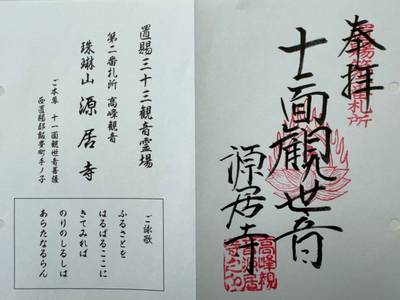 置賜三十三観音霊場
第二番札所 高峰観音
珠琳山 源居寺
ご本尊 十一面観世音菩薩
西置賜郡飯豊町手ノ子
ご詠歌
ふるさとを
はるばるここに
きてみれば
のりのしるしは
あらたなるらん
奉拝
十一面観世音
源居寺